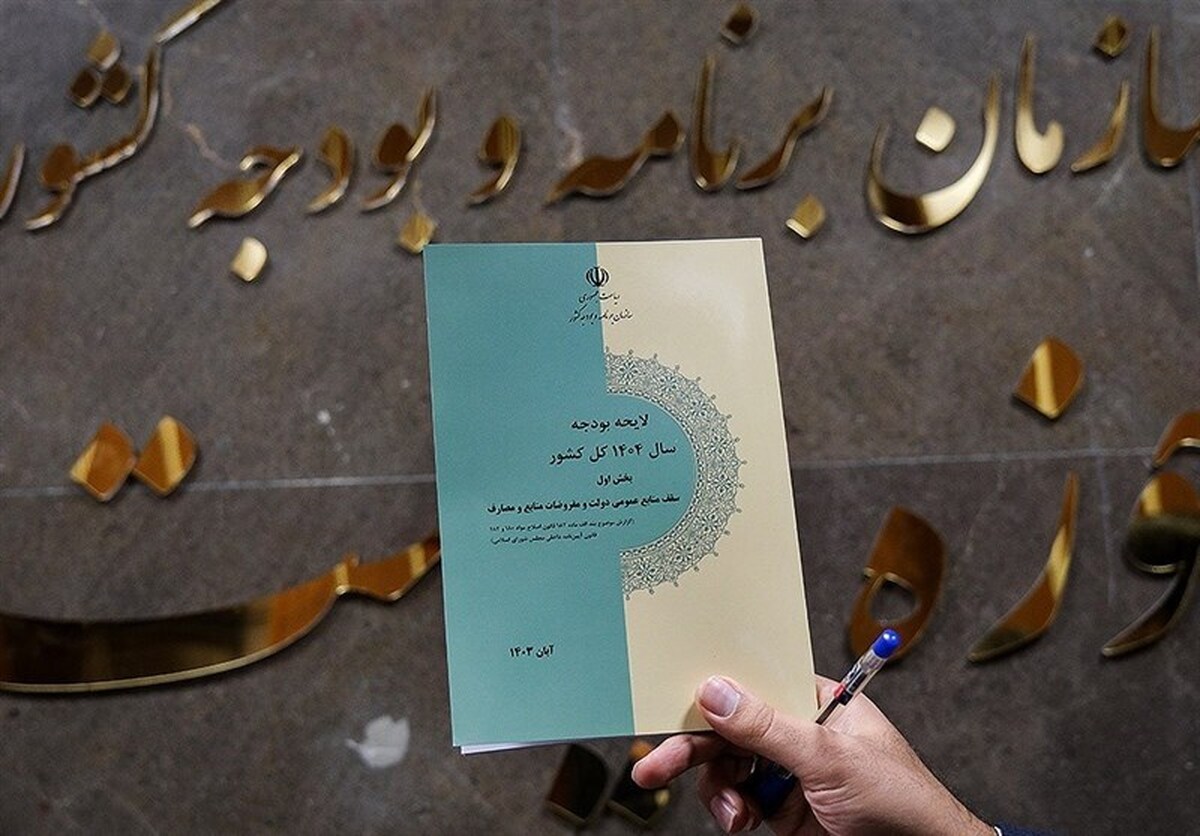 سازمان برنامه و بودجه کشور
ریاست جمهوری
سازمان برنامه و بودجه کشور
لایحه بودجه
سال ۱۴۰۴ کل کشور
بخش اول
سقف منابع عمومی دولت و مفروضات منابع و مصارف
(گزارش موضوع بند الف ماده ۱۸۲ قانون اصلاح مواد ۱۸۰ و ۱۸۲
قانون آیین‌نامه داخلی مجلس شورای اسلامی)
آبان ۱۴۰۳